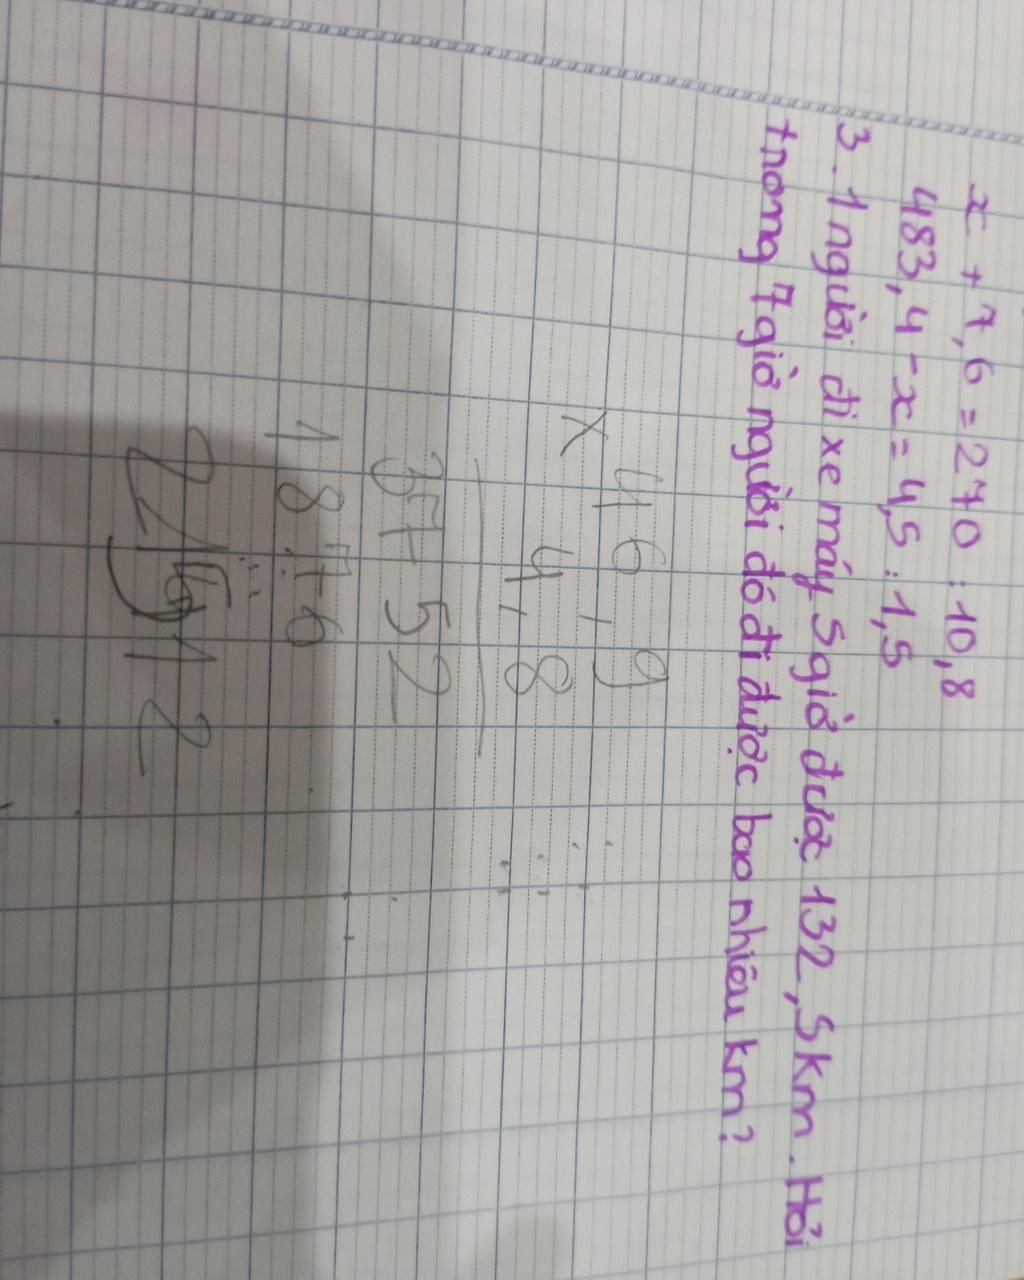 x + 7,6 = 270 : 10,8
483,4 - x = 4,5 : 1,5
3. 1 người đi xe máy 5 giờ được 132,5 km. Hỏi
trong 7 giờ người đó đi được bao nhiêu km?
46,9
×
4,8
3752
1876